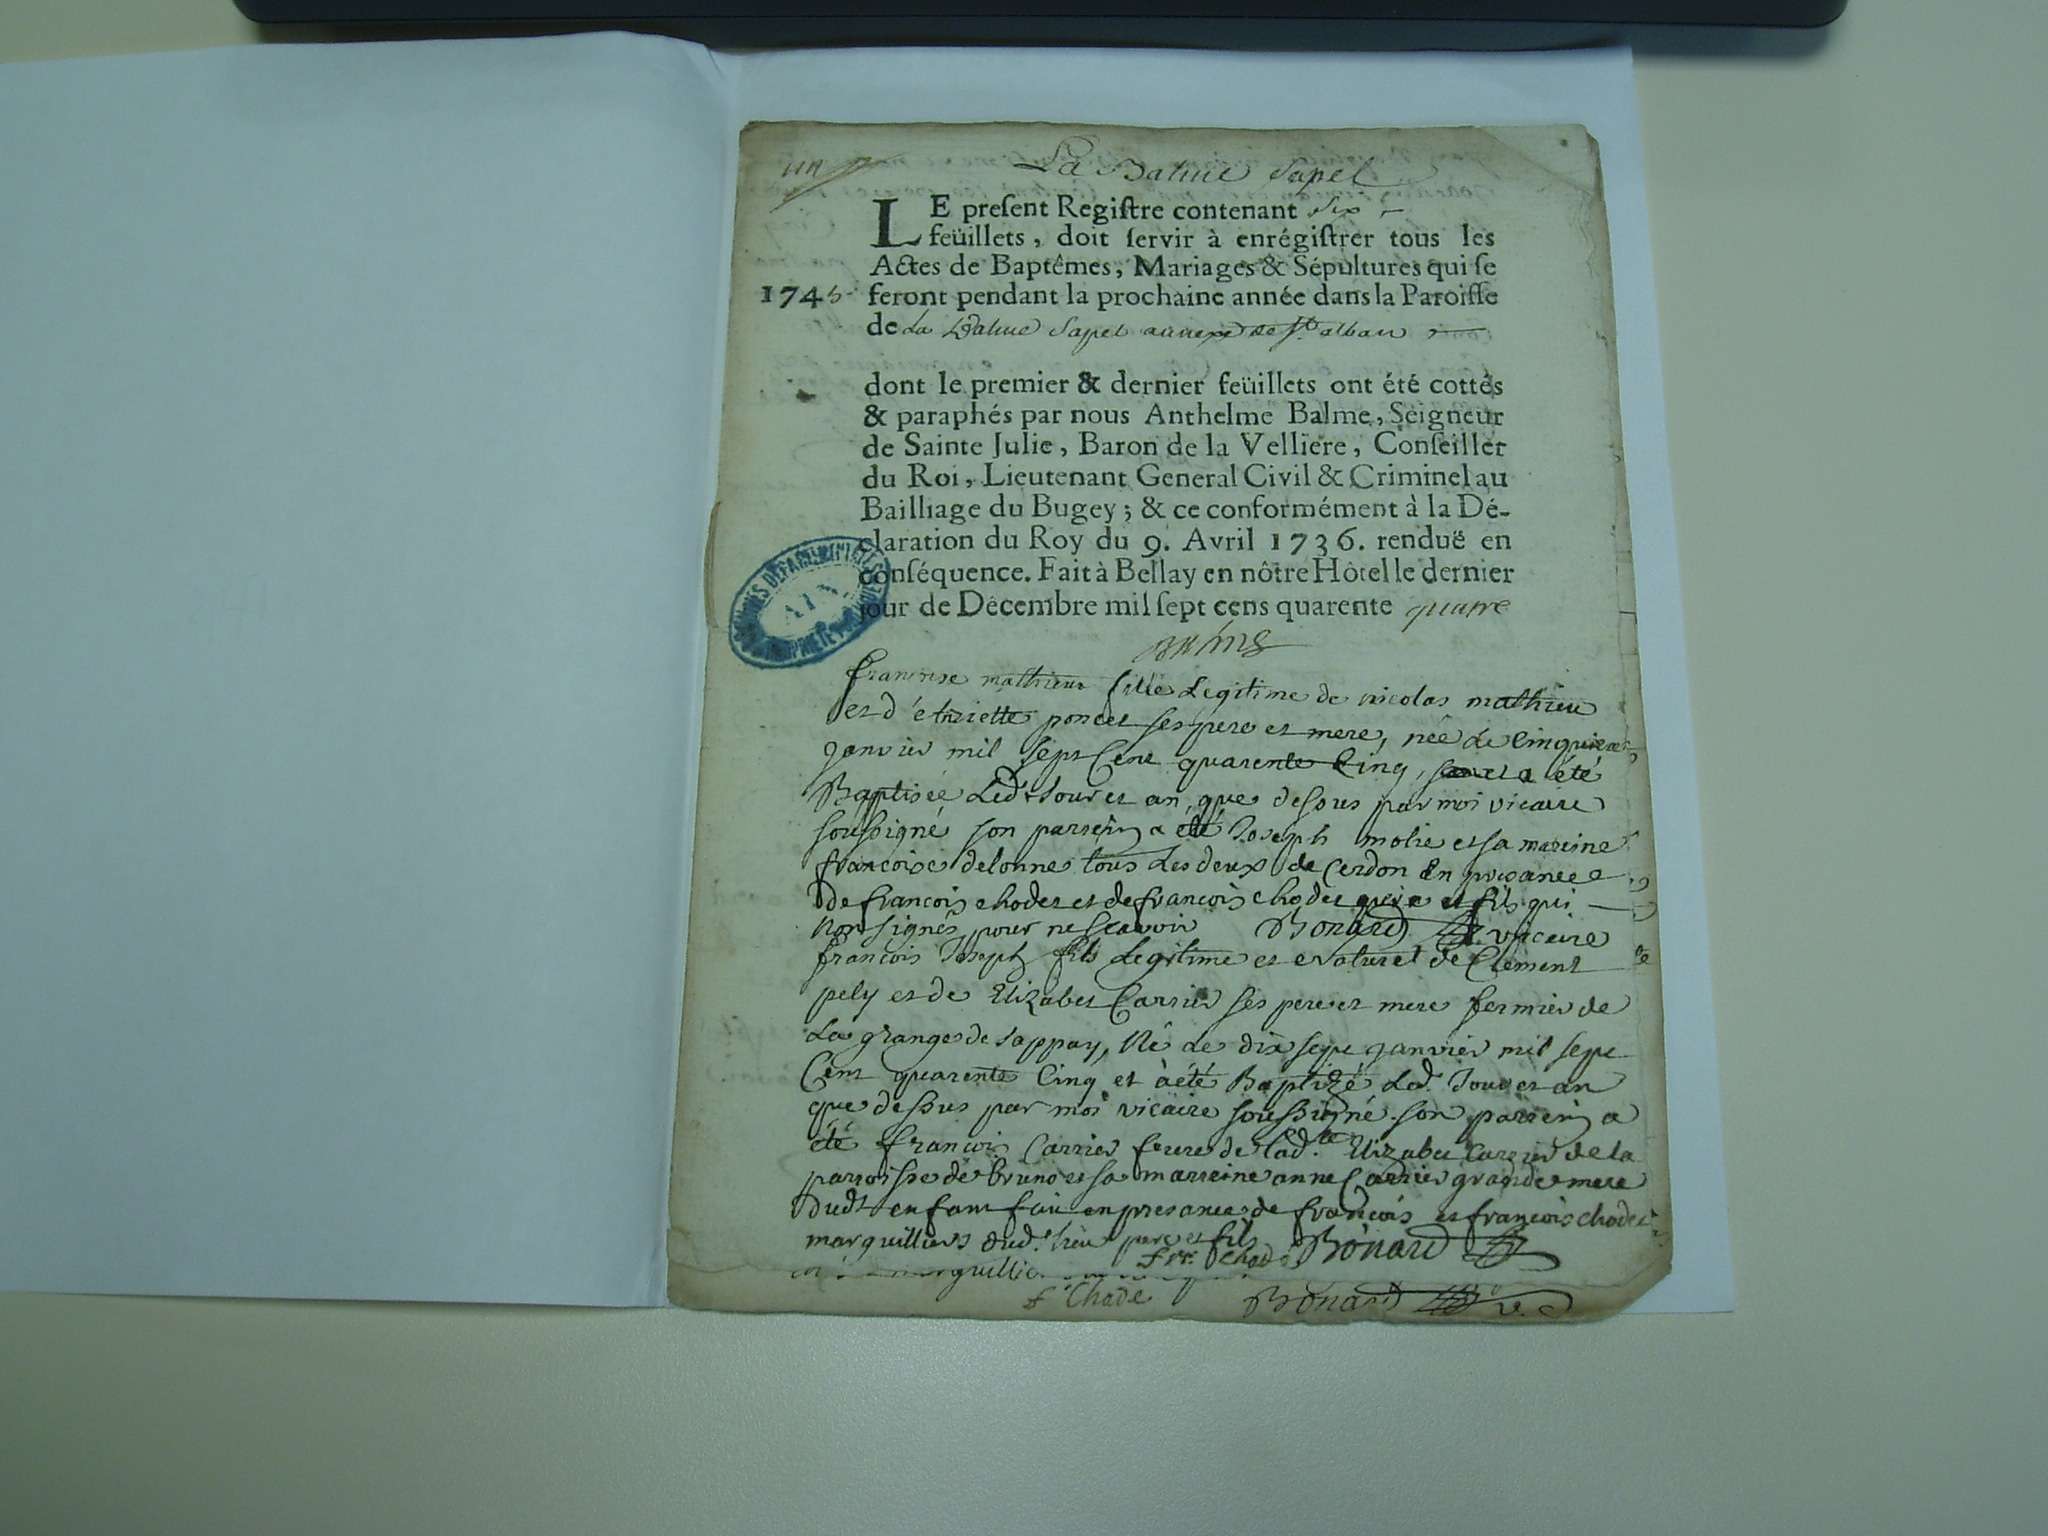 La Balme Sapel
LE present Registre contenant six
feüillets, doit servir à enrégistrer tous les
Actes de Baptêmes, Mariages & Sépultures qui se
1745 feront pendant la prochaine année dans la Paroisse
de La Balme Sapel annexe de St. alban
dont le premier & dernier feüillets ont été cottés
& paraphés par nous Anthelme Balme, Seigneur
de Sainte Julie, Baron de la Velliere, Conseiller
du Roi, Lieutenant General Civil & Criminel au
Bailliage du Bugey; & ce conformément à la Dé-
claration du Roy du 9. Avril 1736. renduë en
conséquence. Fait à Bellay en nôtre Hôtel le dernier
jour de Décembre mil sept cens quarente quatre
ARCHIVES DEPARTEMENTALES
AIN
PROPRIETE PUBLIQUE
francoise mathieu fille Legitime de nicolas mathieu
et d'etiennette poncet ses pere et mere, née le Cinquieme
janvier mil sept Cent quarente Cinq, et a été
Baptisée Led. Jour et an que dessus par moi vicaire
soussigné son parrein a été Joseph molie et sa mareine
francoise delonne tous Les deux de Cerdon En presance
De francois chodet et de francois chodet pere et fils qui
Non signés pour ne scavoir Bonard vicaire
francois Joseph fils Legitime et Naturel de Clement
pely et de Elizabet Carrier ses pere et mere fermier de
La grange de sappay, Né Le dix sept janvier mil sept
Cent quarente Cinq et à été Baptizé Led. Jour et an
que dessus par moi vicaire soussigné. son parrein a
été francois Carrier frere de Lad.te Elizabet Carrier de la
parroisse de bruno et sa marreine anne Carrier grande mere
Dudt enfant fait en presance de francois et francois chodet
marguilliers dud. lieu pere et fils fr. Chode Bonard
f Chode Bonard v.